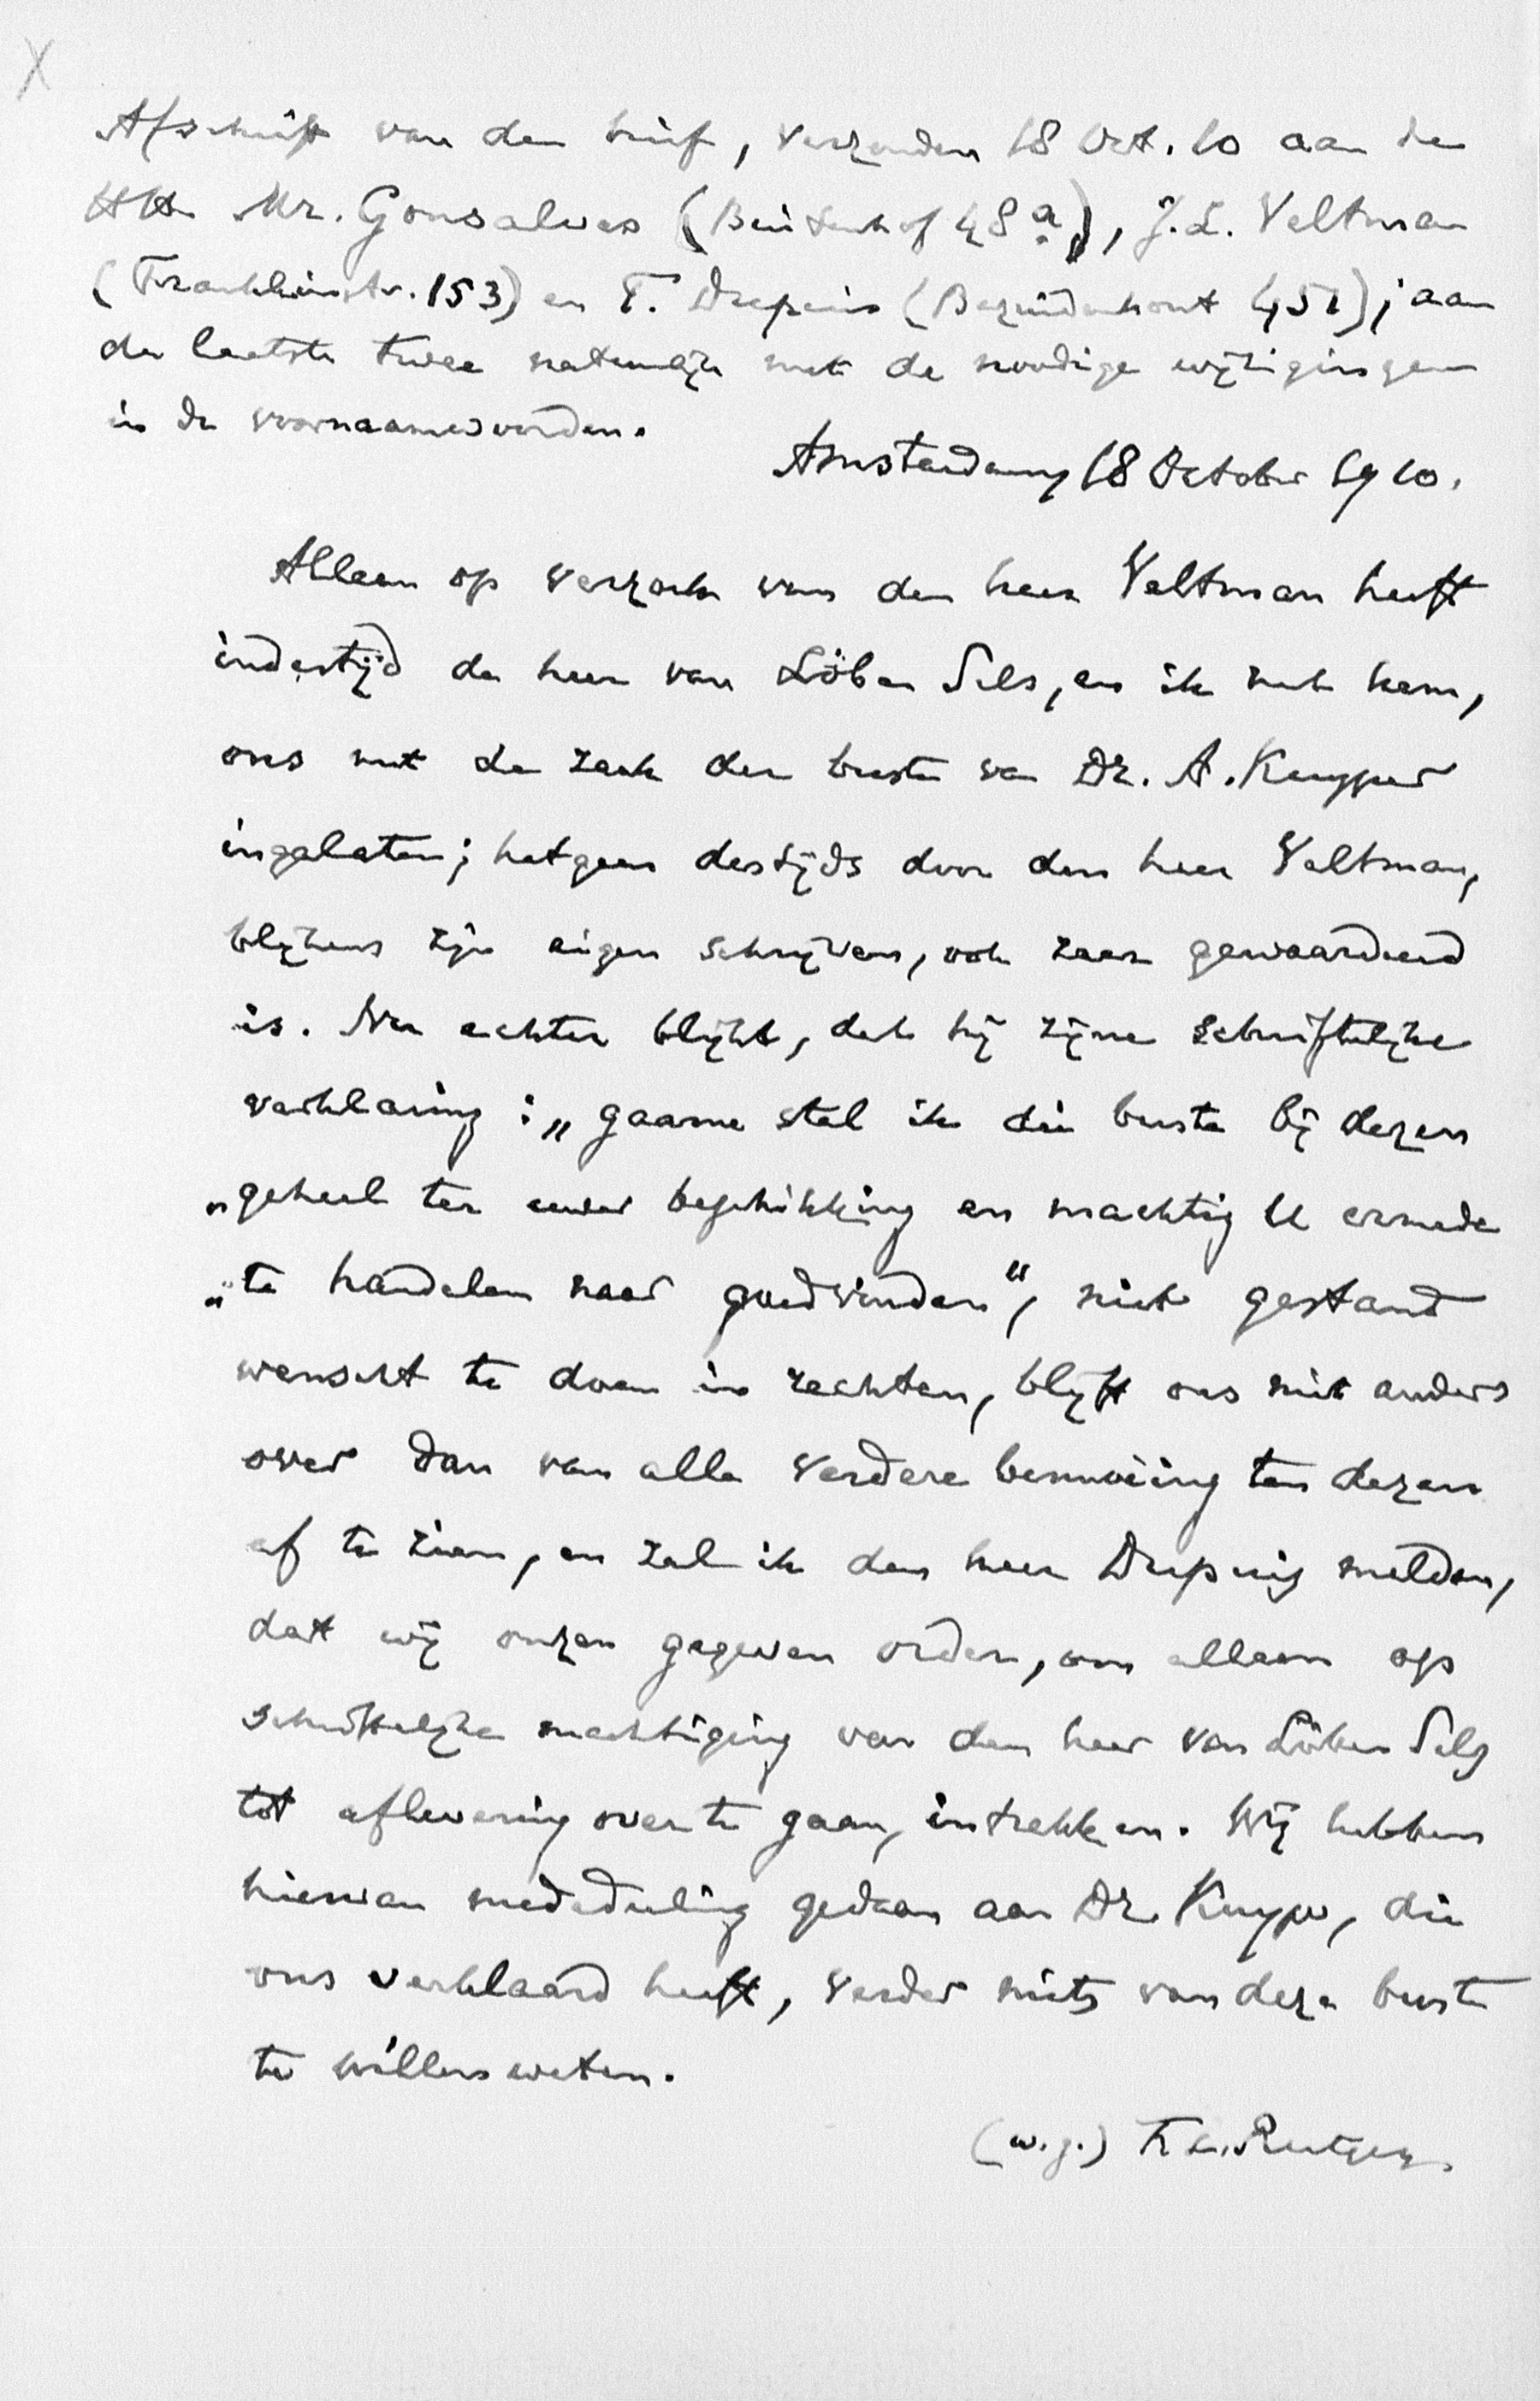 X
Afschrift van den brief, verzonden 18 Oct. 10 aan de
HH. Mr. Gonsalves (Buitenhof 48a), J.L. Veltman
(Franklinstr. 153) en F. (Bezuidenhout 451); aan
de laatste twee natuurlijk met de noodige wijzigingen
in de voornaamwoorden.
Amsterdam, 18 October 1910.
Alleen op verzoek van den heer Veltman heeft
indertijd de heer van Löben Sels, en ik met hem,
ons met de zaak der buste van Dr. A. Kuyper
ingelaten; hetgeen destijds door den heer Veltman,
blijkens zijn eigen schrijven, ook zeer gewaardeerd
is. Nu echter blijkt, dat hij zijne schriftelijke
verklaring: „gaarne stel ik die buste bij dezen
„geheel ter uwer beschikking en machtig U ermede
„te handelen naar goedvinden“, niet gestand
wenscht te doen in rechten, blijft ons niet anders
over dan van alle verdere bemoeiing ten dezen
af te zien, en zal ik den heer melden,
dat wij onzen gegeven order, om alleen op
schriftelijke machtiging van den heer van Löben Sels
tot aflevering over te gaan, intrekken. Wij hebben
hiervan mededeeling gedaan aan Dr. Kuyper, die
ons verklaard heeft, verder niets van deze buste
te willen weten.
(w.g.) F.L. Rutgers.